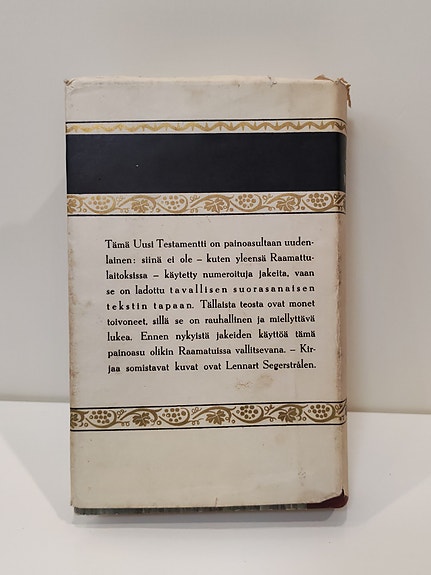 Tämä Uusi Testamentti on painoasultaan uuden-
lainen: siinä ei ole – kuten yleensä Raamattu-
laitoksissa – käytetty numeroituja jakeita, vaan
se on ladottu tavallisen suorasanaisen
tekstin tapaan. Tällaista teosta ovat monet
toivoneet, sillä se on rauhallinen ja miellyttävä
lukea. Ennen nykyistä jakeiden käyttöä tämä
painoasu olikin Raamatuissa vallitsevana. – Kir-
jaa somistavat kuvat ovat Lennart Segerstrålen.